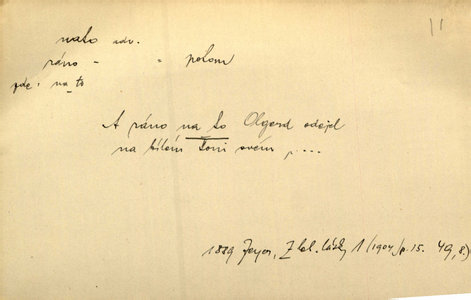 11
nato adv.
ráno - " potom
zde: na to
A ráno na to Olgerd odejel
na bílém koni svém, ....
1889 Zeyer, Z let. lásky 1 (1904) p. 15. 49, 8.)